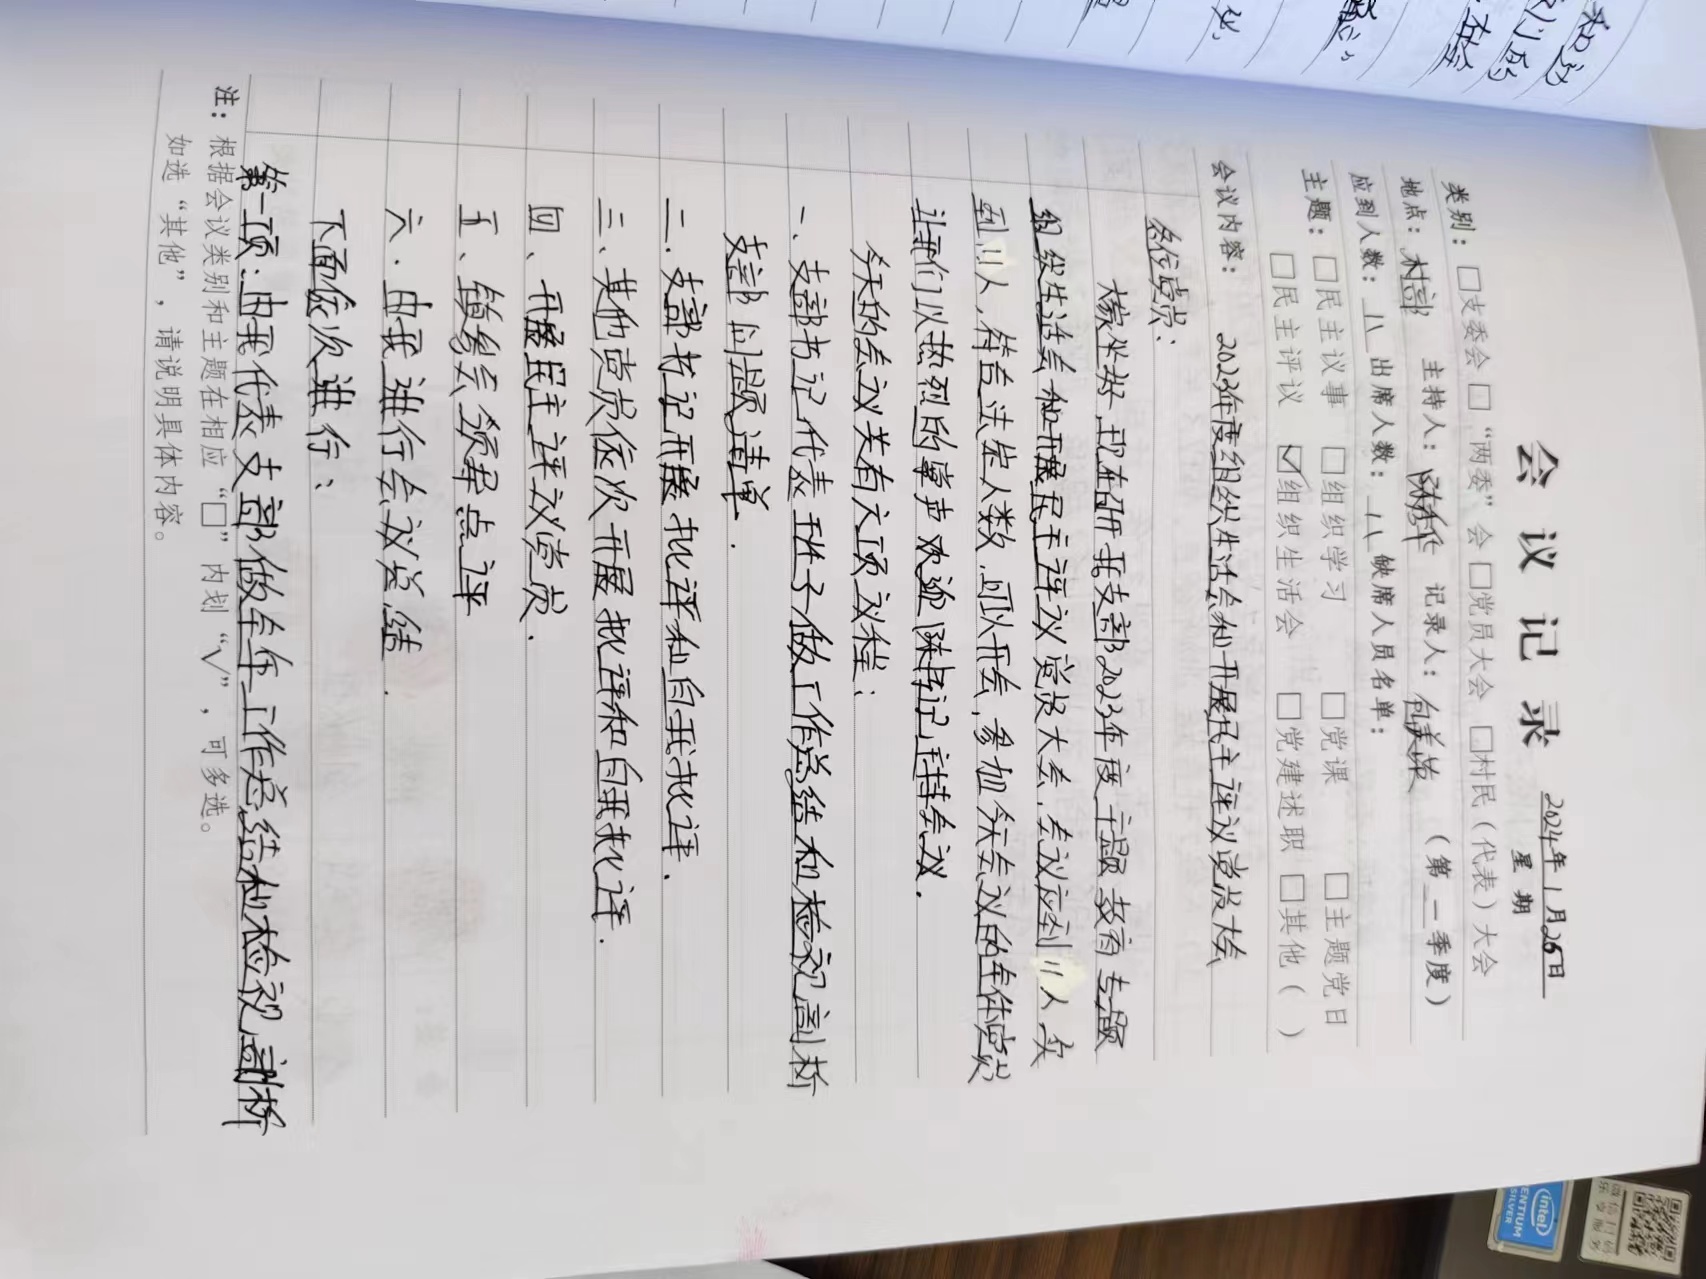 会议记录
2024年1月26日
星期
类别：□支委会 □“两委”会 □党员大会 □村民（代表）大会
地点：村部 主持人： 记录人： （第一季度）
应到人数：八 出席人数：八 缺席人员名单：
主题：□民主议事 □组织学习 □党课 □主题党日
□民主评议 ☑组织生活会 □党建述职 □其他（ ）
会议内容： 2023年度组织生活会和开展民主评议党员大会
各位党员：
大家上午好，现在召开我支部2023年度主题教育专题
组织生活会和开展民主评议党员大会，会议应到11人实
到11人，符合法定人数，可以开会，参加今天会议的全体党员
让我们以热烈的掌声欢迎陈书记主持会议.
今天的会议共有六项议程：
一、支部书记代表班子做工作总结和检视剖析
支部问题清单.
二、支部书记开展批评和自我批评.
三、其他党员依次开展批评和自我批评.
四、开展民主评议党员.
五、镇参会领导点评
六、由我进行会议总结.
下面依次进行：
第一项：由我代表支部做全年工作总结和检视剖析
注：根据会议类别和主题在相应“□”内划“√”，可多选。
如选“其他”，请说明具体内容。
intel
PENTIUM
SILVER